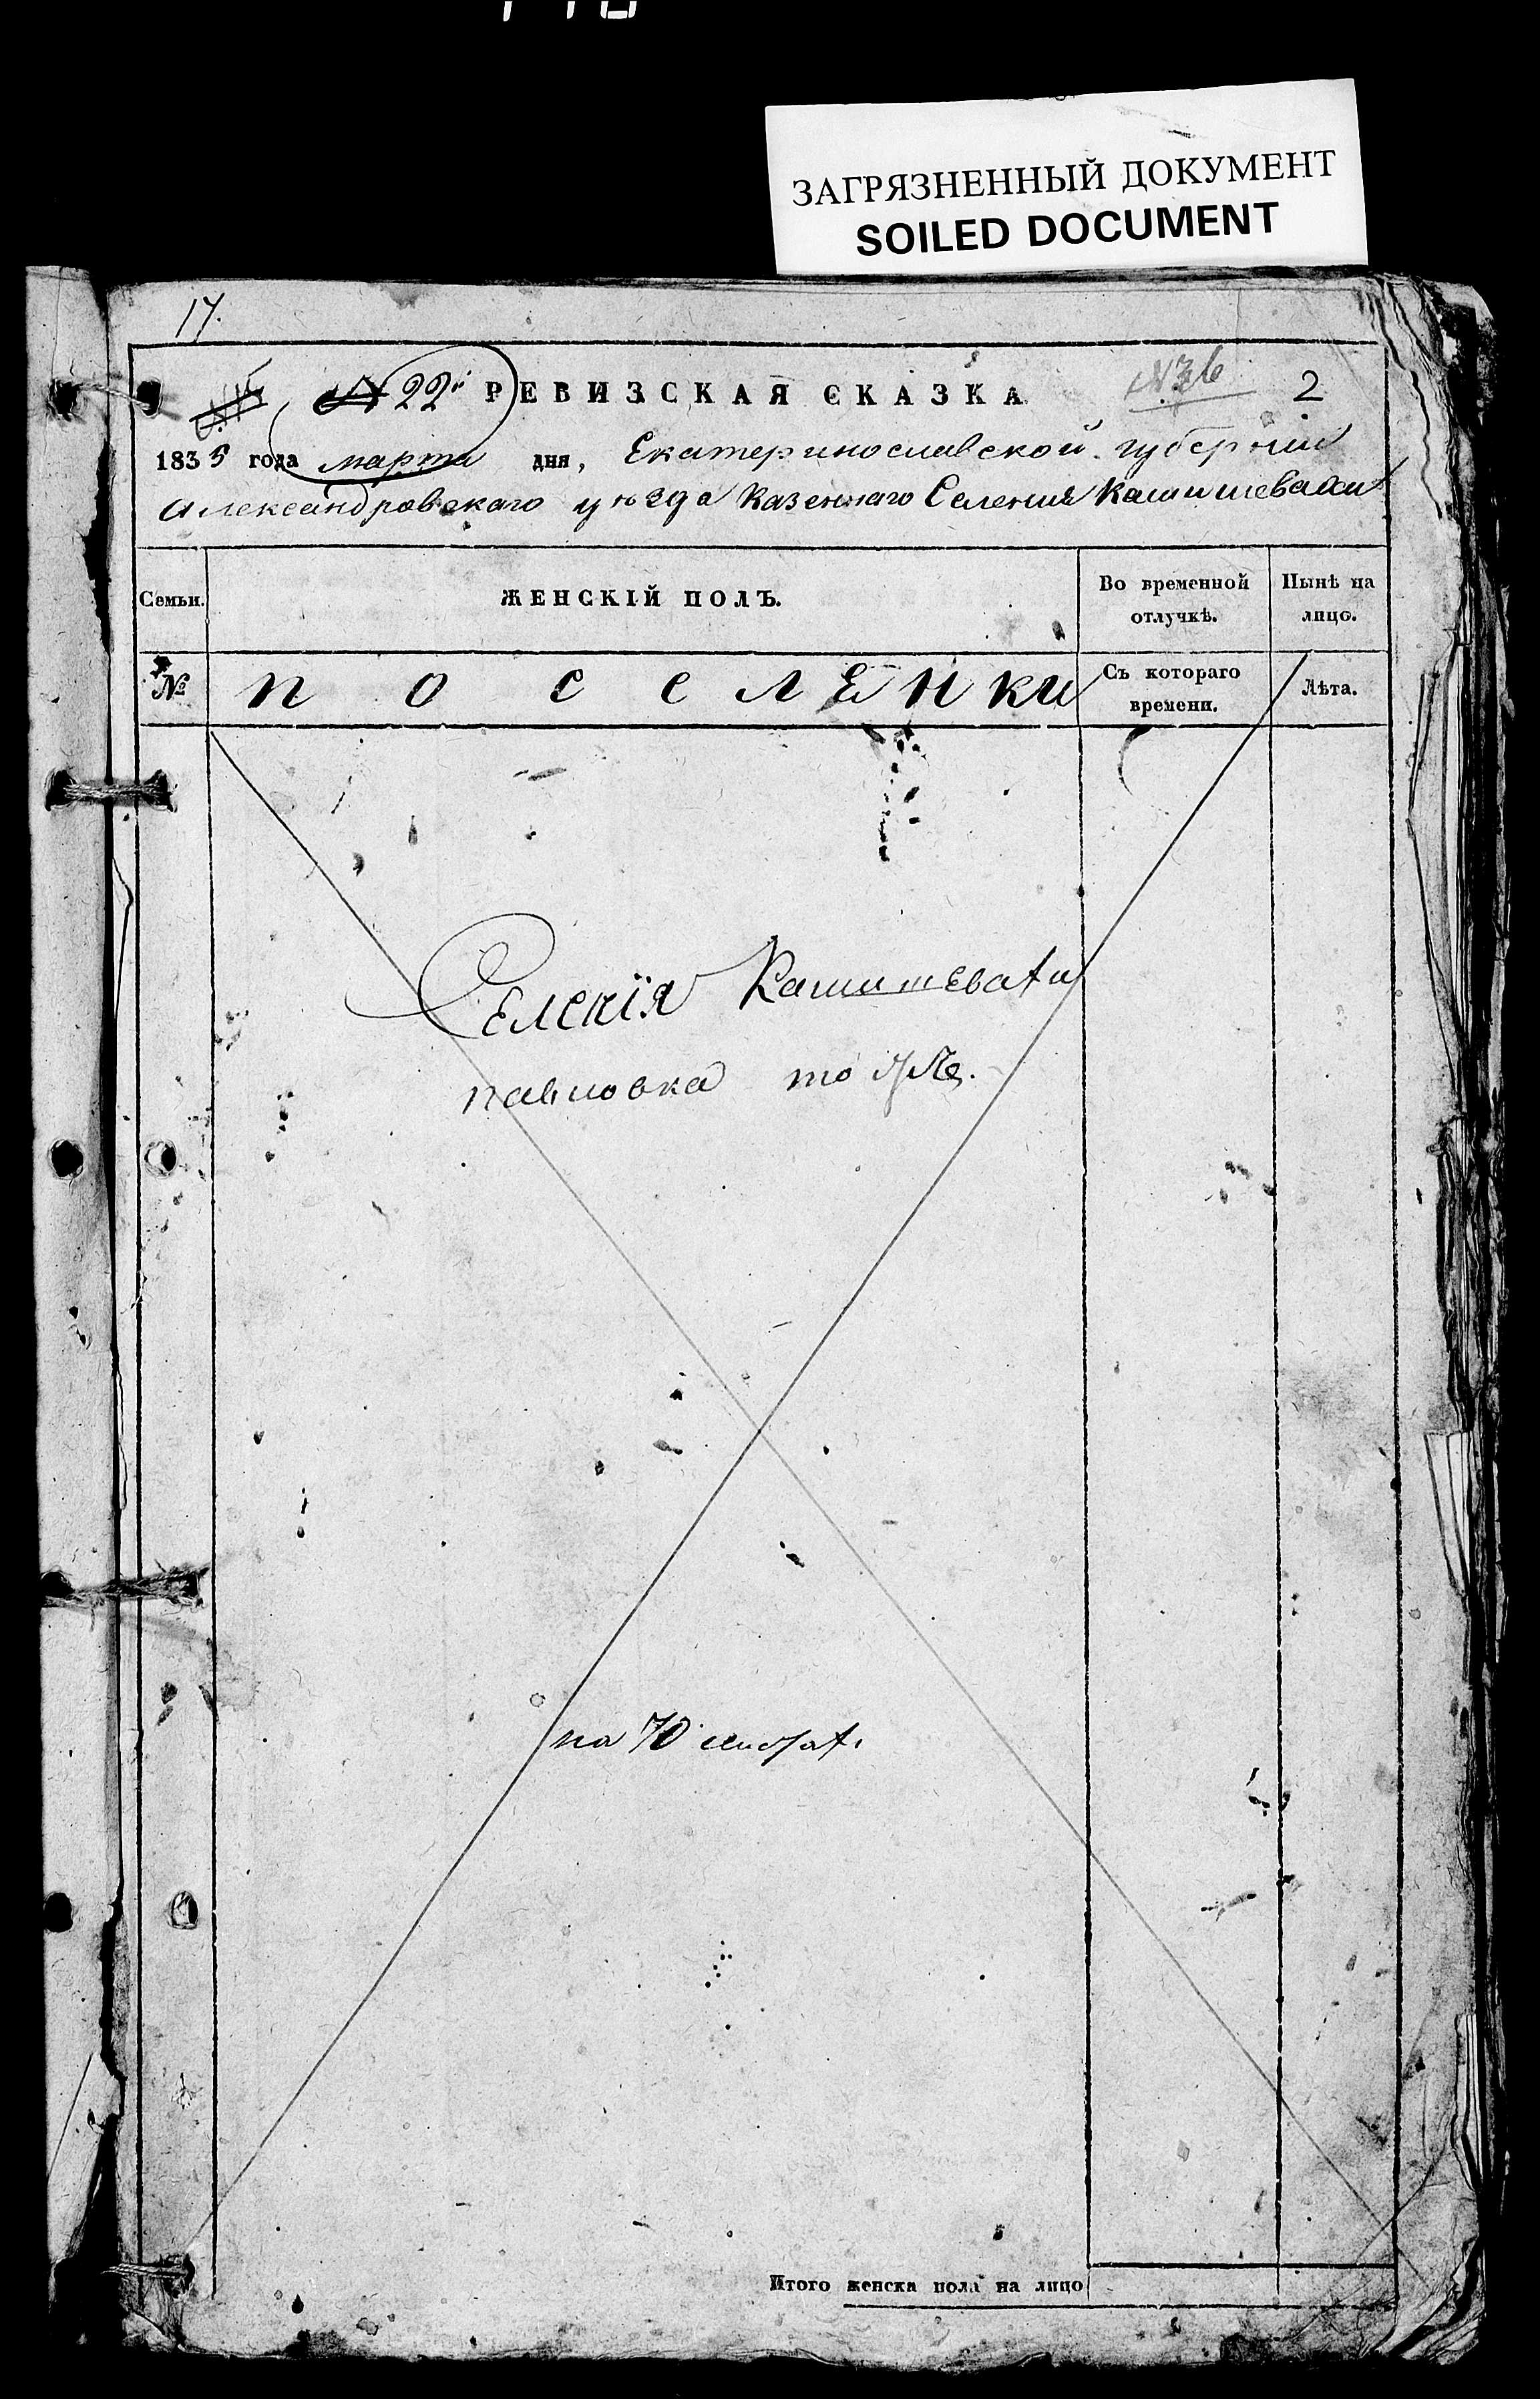 ЗАГРЯЗНЕННЫЙ ДОКУМЕНТ
SOILED DOCUMENT
17.
22й РЕВИЗСКАЯ СКАЗКА
2
1835 года марта дня, Екатеринославской губернии
Александровскаго уезда Казеннаго Селения Камишевахи
Семьи.
ЖЕНСКІЙ ПОЛЪ.
Во временной отлучкѣ.
Нынѣ на лицо.
№
поселенки
Съ котораго времени.
Лѣта.
Селенія Камишевахи
павловка тожъ.
на 70 листах.
Итого женска пола на лицо